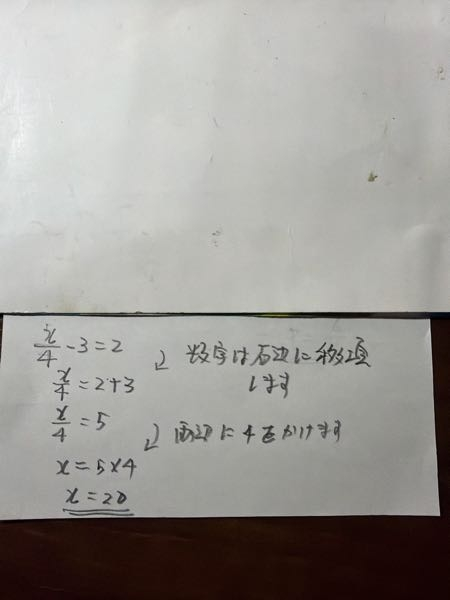 x/4 - 3 = 2
数字は右辺に移項
します
x/4 = 2+3
x/4 = 5
両辺に4をかけます
x = 5×4
x = 20